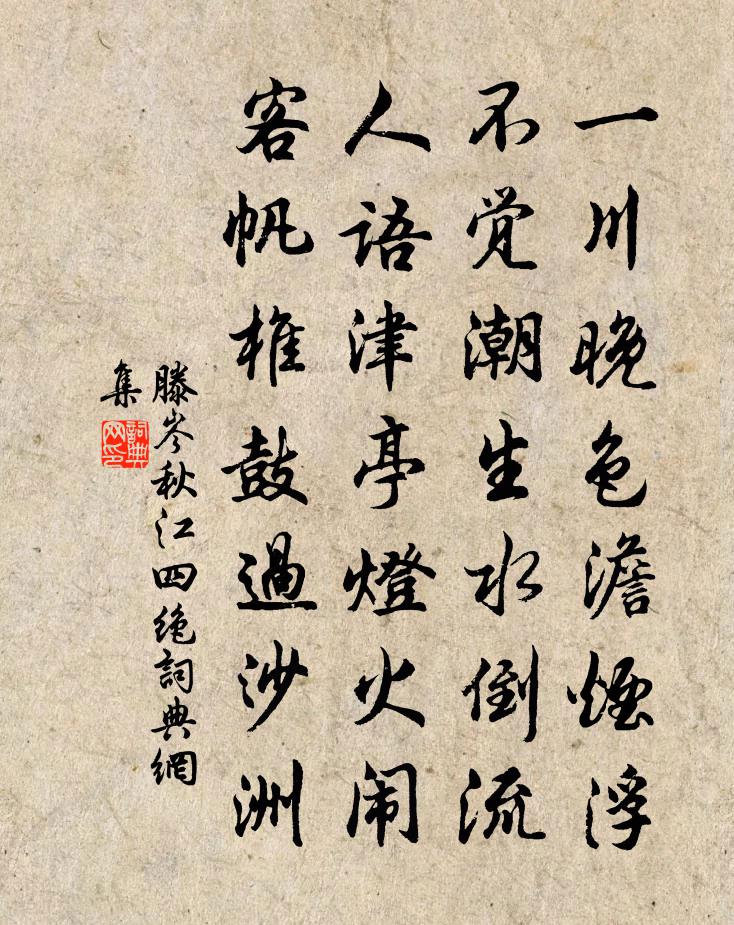 一川晚色澹煙浮
不觉潮生水倒流
人語津亭燈火闹
客帆椎鼓過沙洲
滕岑秋江四绝詞典網
集
詞典
网印